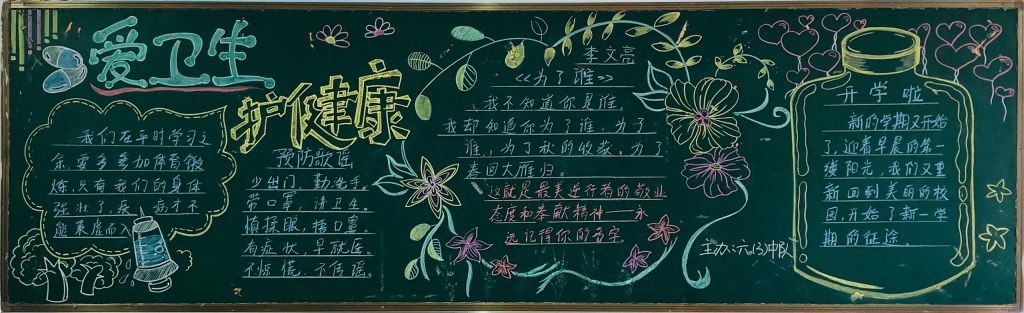 爱卫生
护健康
我们在平时学习之
余，要多参加体育锻
炼，只有我们的身体
强壮了，疾病才不
能乘虚而入
预防歌谣
少出门，勤洗手。
带口罩，讲卫生。
慎揉眼，捂口鼻。
有症状，早就医。
不惊慌，不传谣。
李文亮
《为了谁》
我不知道你是谁，
我却知道你为了谁，为了
谁，为了秋的收获，为了
春回大雁归。
这就是最美逆行者的敬业
态度和奉献精神——永
远记得你的名字。
主办：六(3)中队
开学啦
新的学期又开始
了，迎着早晨的第一
缕阳光，我们又重
新回到美丽的校
园，开始了新一学
期的征途。